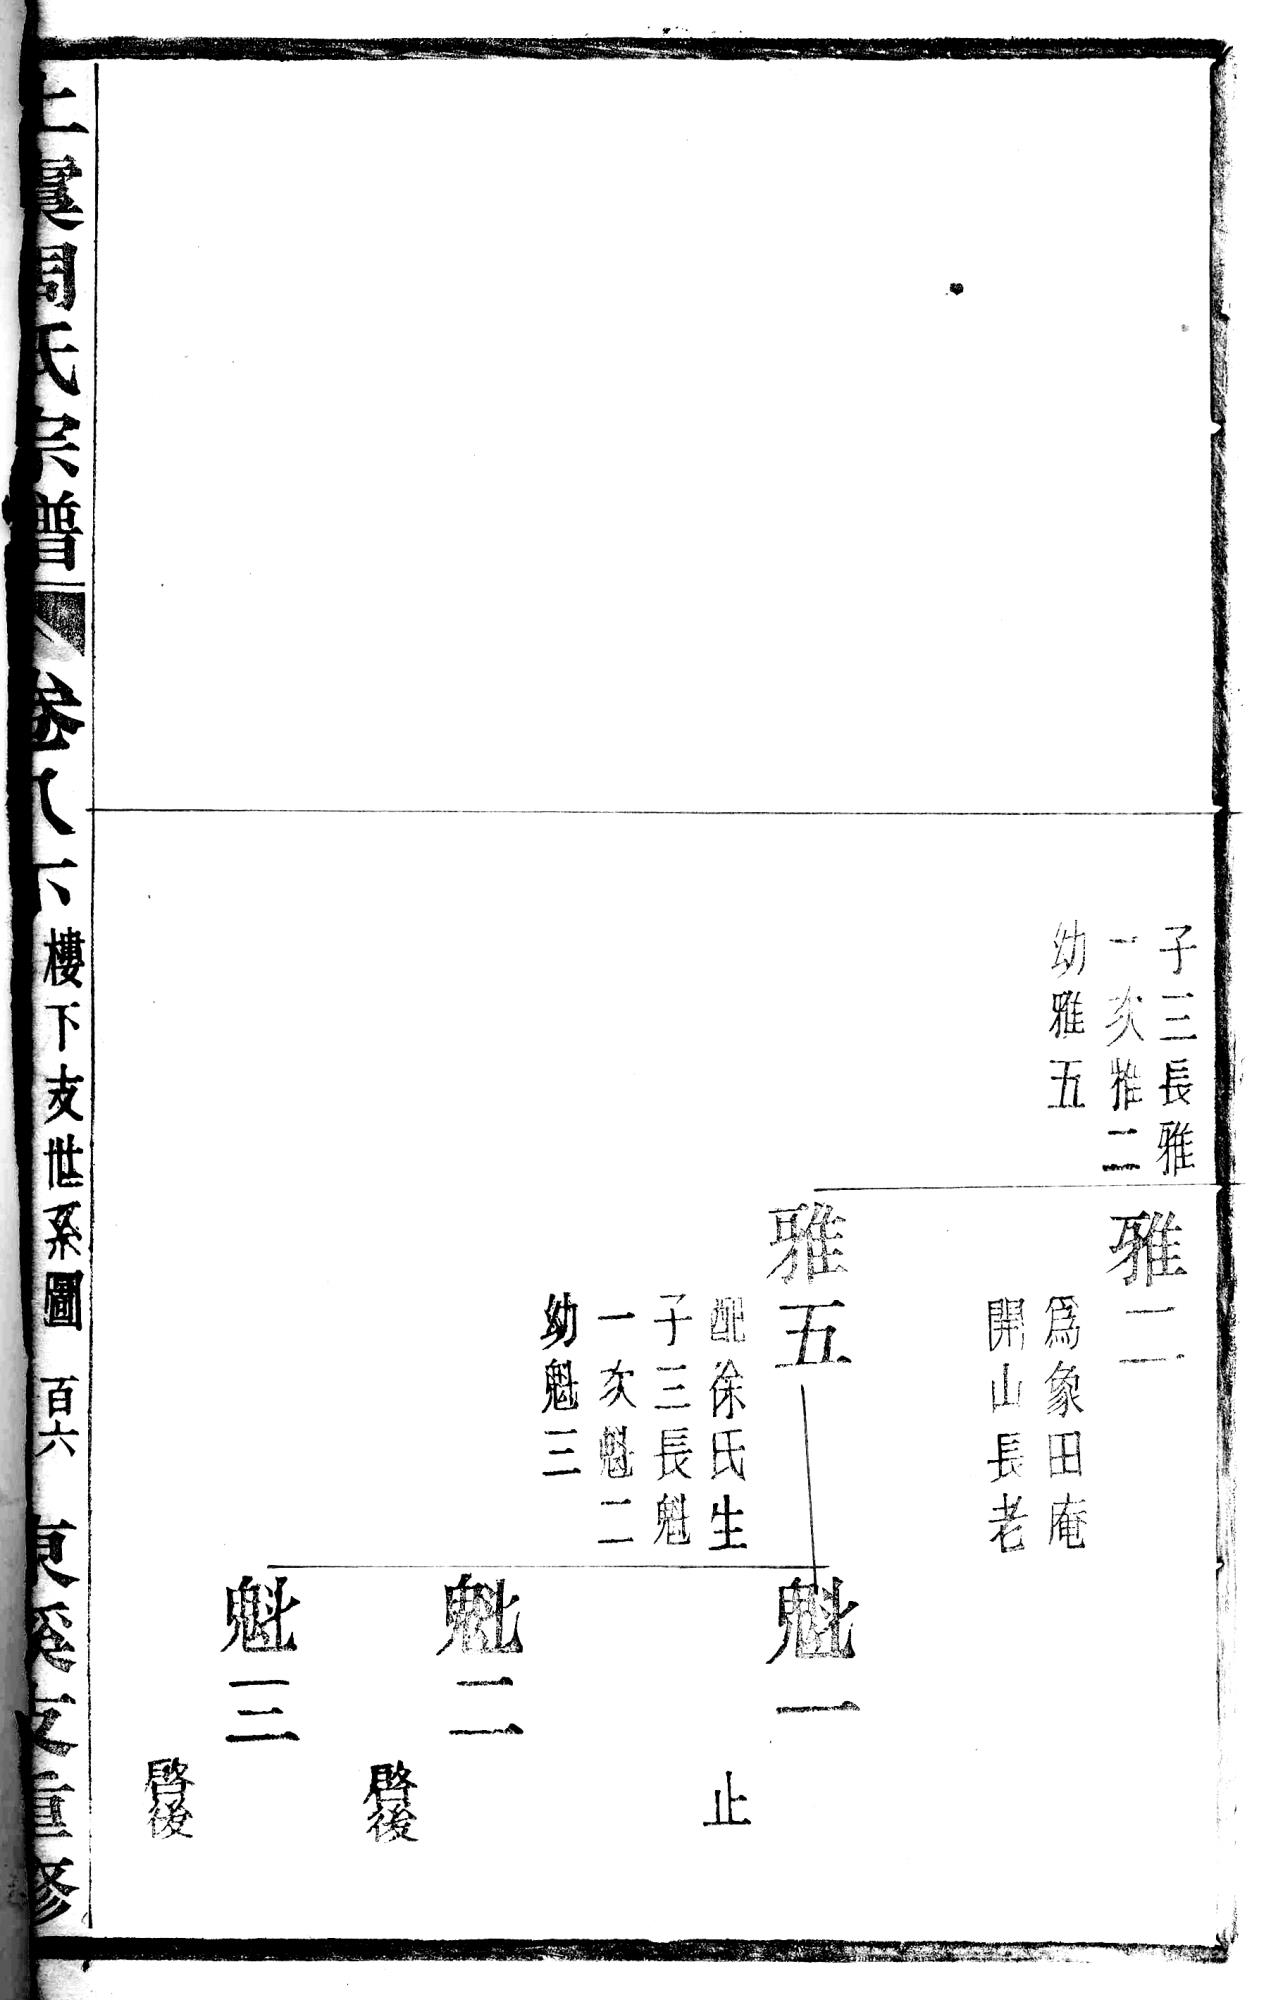 子三長雅
一次雅二
幼雅五
雅二
爲象田庵
開山長老
雅五
配徐氏生
子三長魁
一次魁二
幼魁三
魁一
止
魁二
啓後
魁三
啓後
上虞周氏宗譜 卷八下 樓下支世系圖 百六 東溪支重修